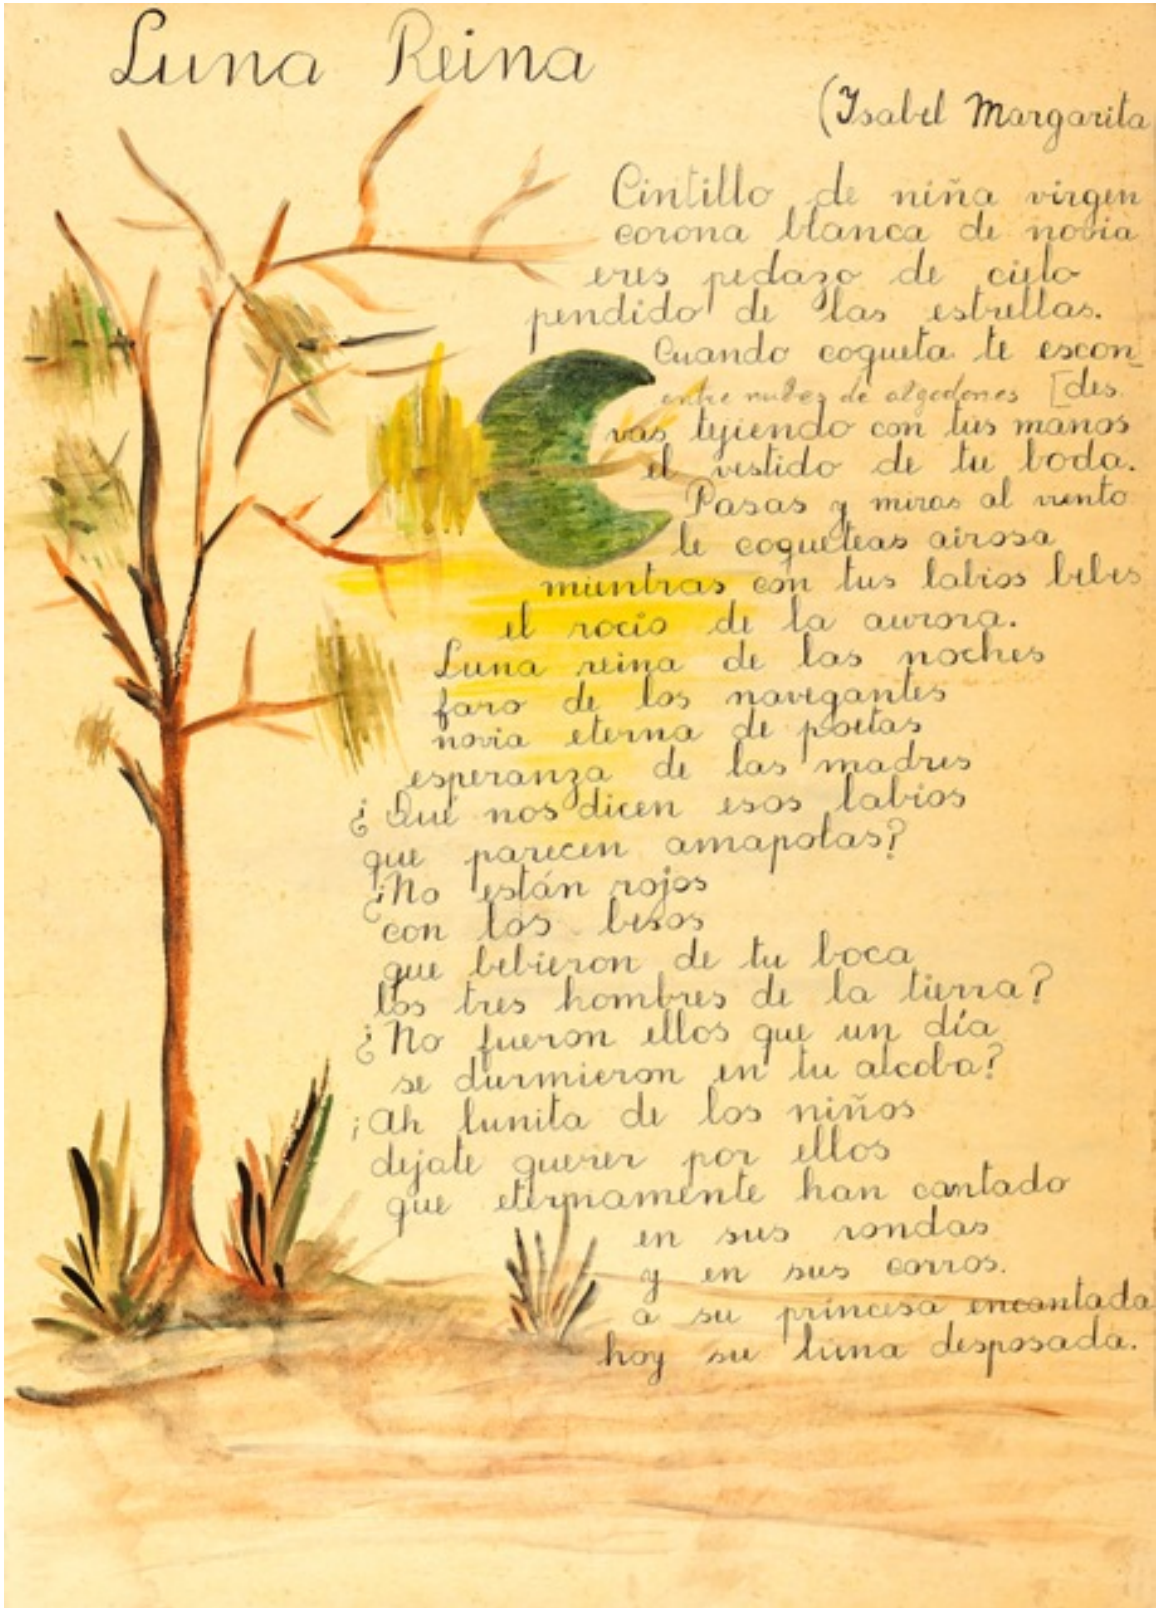 Luna Reina
(Isabel Margarita
Cintillo de niña virgen
corona blanca de novia
eres pedazo de cielo
pendido de las estrellas.
Cuando coqueta te escon
entre nubes de algodones [des.
vas tejiendo con tus manos
el vestido de tu boda.
Pasas y miras al viento
le coqueteas airosa
mientras con tus labios bebes
el rocío de la aurora.
Luna reina de las noches
faro de los navegantes
novia eterna de poetas
esperanza de las madres
¿Qué nos dicen esos labios
que parecen amapolas?
¿No están rojos
con los besos
que bebieron de tu boca
los tres hombres de la tierra?
¿No fueron ellos que un día
se durmieron en tu alcoba?
¡Ah lunita de los niños
dejate querer por ellos
que eternamente han cantado
en sus rondas
y en sus corros.
a su princesa encantada
hoy su luna desposada.